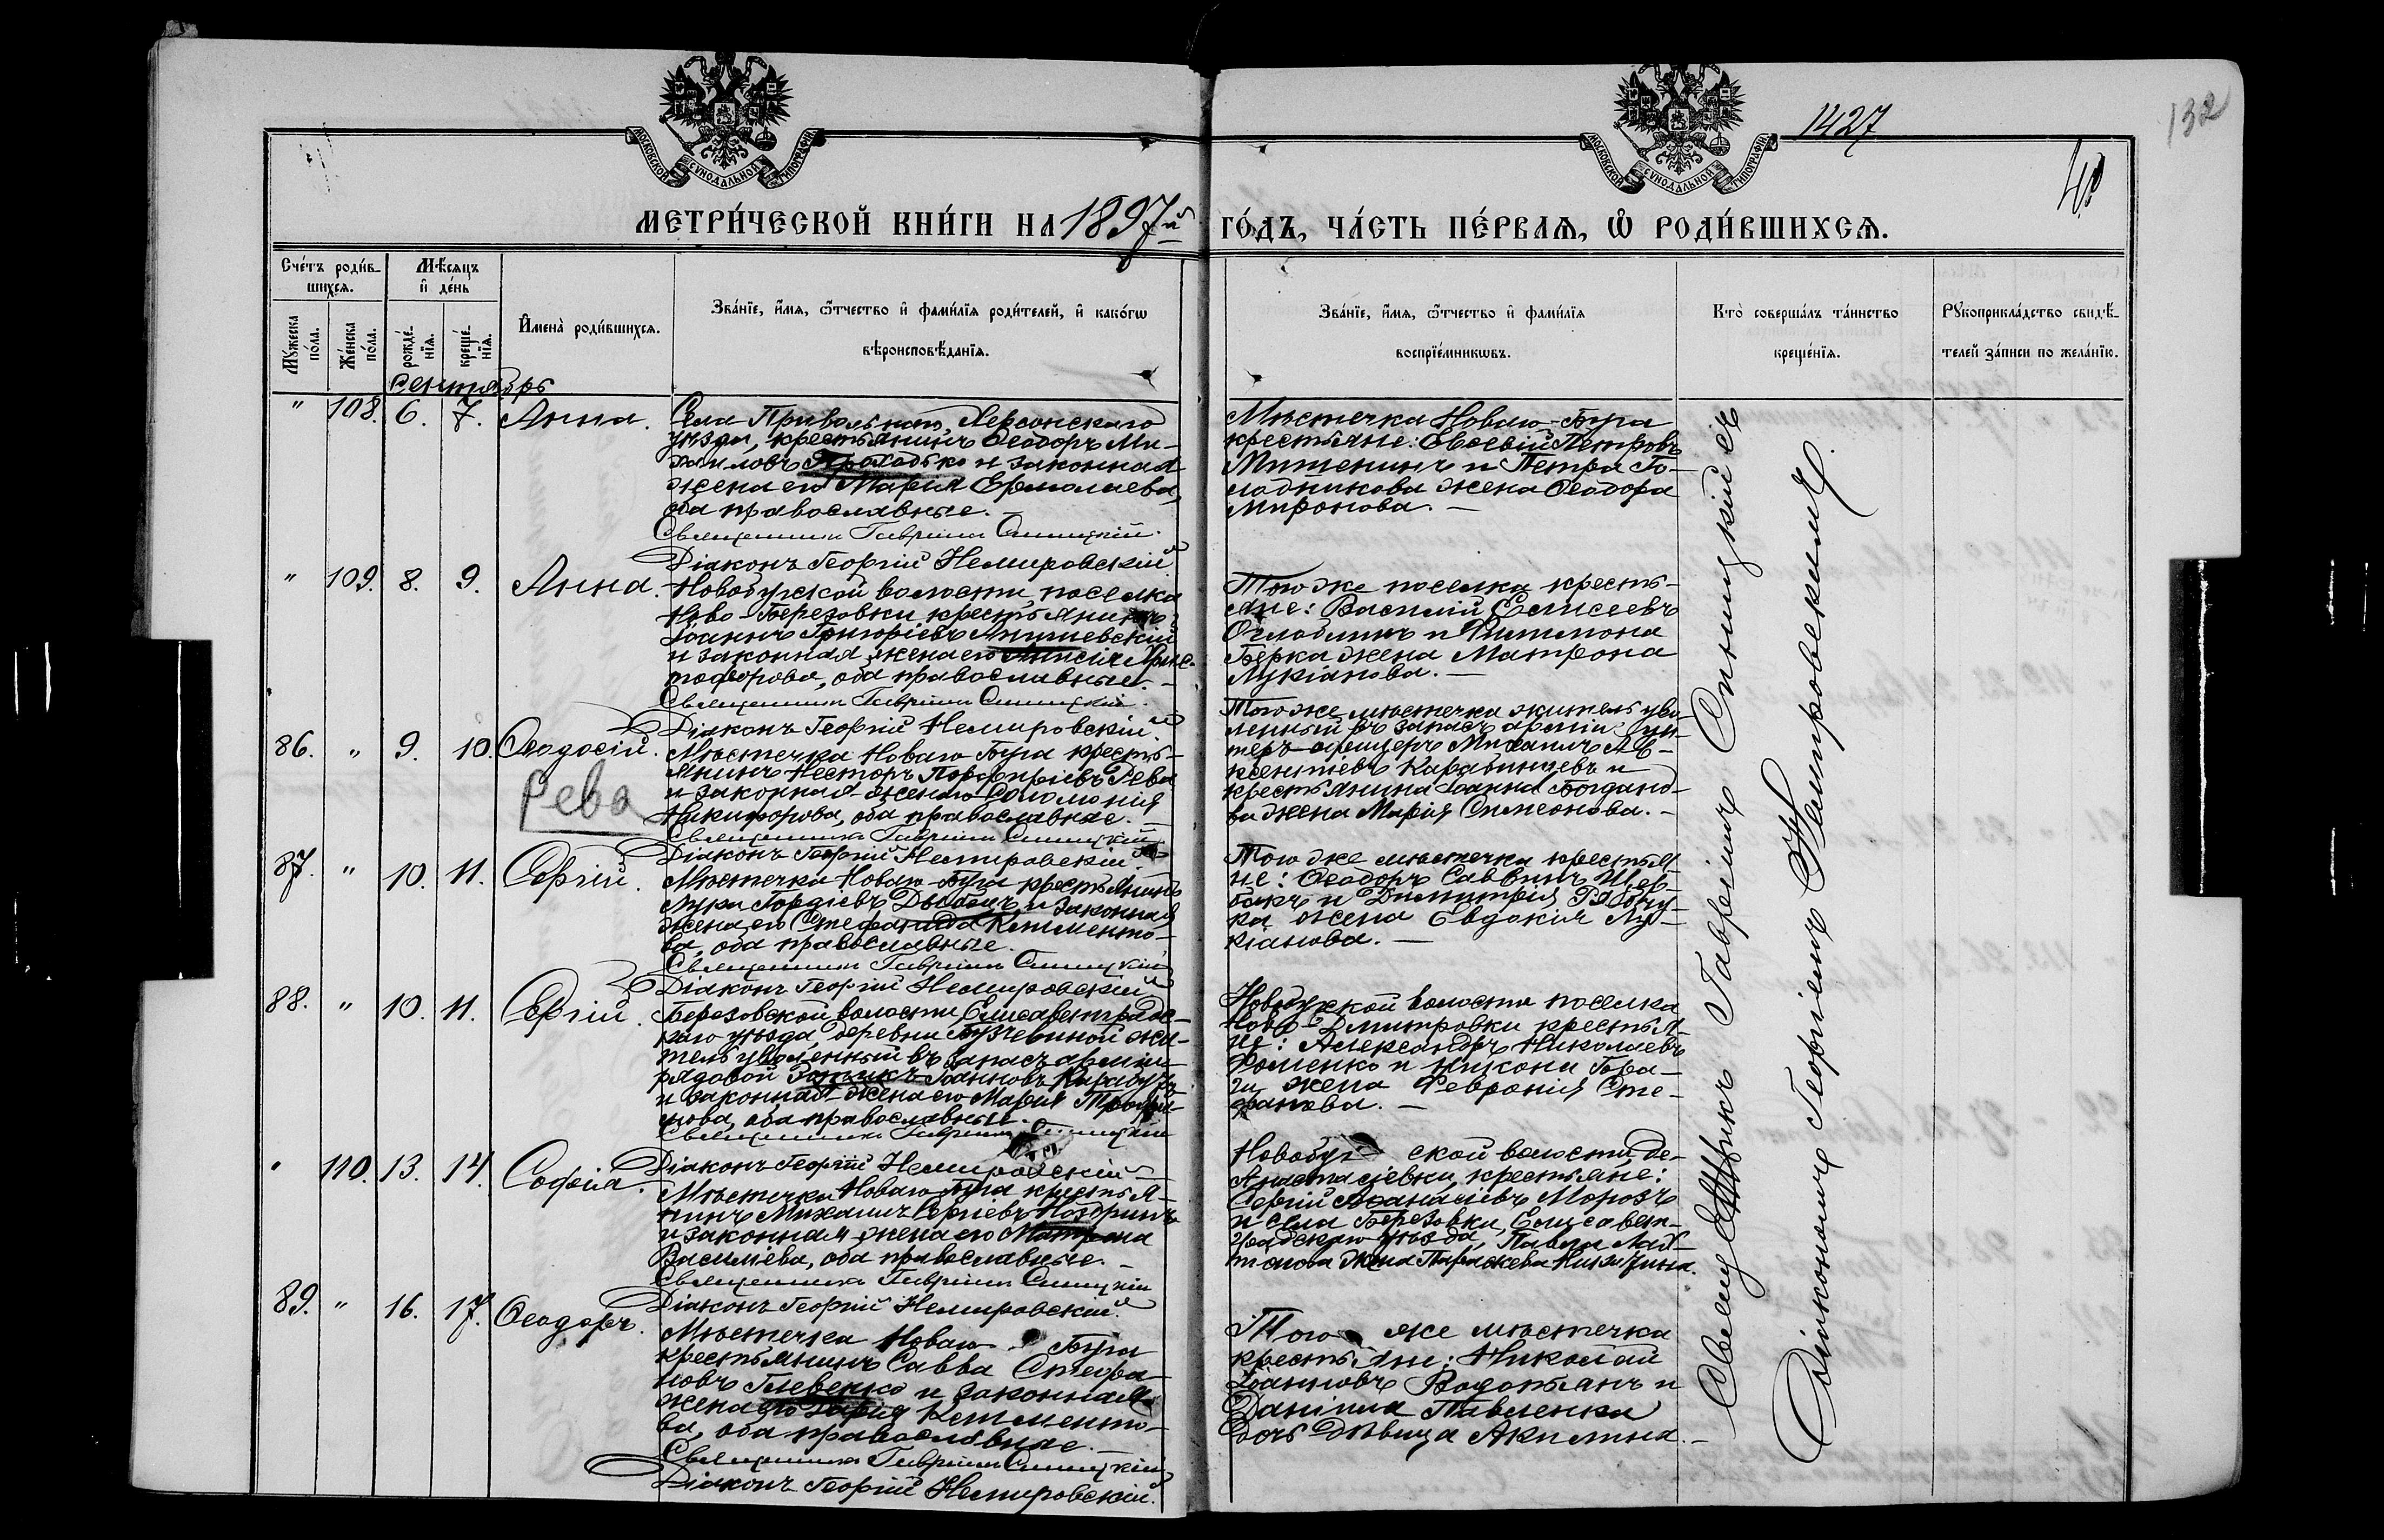 1427
132
МОСКОВСКОЙ СѴНОДАЛЬНОЙ ТИПОГРАФІИ
МОСКОВСКОЙ СѴНОДАЛЬНОЙ ТИПОГРАФІИ
МЕТРИ́ЧЕСКОЙ КНИ́ГИ НА 1897й ГО́ДЪ, ЧА́СТЬ ПЕ́РВАѦ, Ѽ РОДИ́ВШИХСѦ.
Сче́тъ роди́вшихсѧ.
Мѣ́сѧцъ и҆ де́нь
Мꙋ́жеска по́ла.
Же́нска по́ла.
рожде́нїѧ.
креще́нїѧ.
И҆мена̀ роди́вшихсѧ.
Зва́нїе, и҆́мѧ, ѻ҆́тчество и҆ фами́лїѧ роди́телей, и҆ како́гѡ
вѣроисповѣ́данїѧ.
Зва́нїе, и҆́мѧ, ѻ҆́тчество и҆ фами́лїѧ
воспрїе́мникѡвъ.
Кто̀ соверша́лъ та́инство
креще́нїѧ.
Рꙋкоприкла́дство свидѣ́телей за́писи по жела́нїю.
Сентябрь
" 108. 6. 7. Анна.
Села Привольнаго, Херсонскаго
уѣзда, крестьянинъ Ѳеодоръ Ми-
хаиловъ Проходько и законная
жена его Марія Ермолаева,
оба православные.
Священникъ Гавріилъ Синицкій.
Діаконъ Георгій Немировскій
Мѣстечка Новаго-Буга
крестьяне: Евсевій Петровъ
Митенинъ и Петра Го-
лодникова жена Ѳеодора
Миронова.
" 109. 8. 9. Анна.
Новобугской волости, поселка
Ново-Березовки, крестьянинъ
Іоаннъ Григоріевъ
и законная жена его Анисія Хрис-
тофорова, оба православные.
Священникъ Гавріилъ Синицкій.
Діаконъ Георгій Немировскій.
Того же поселка кресть-
яне: Василій Елисеевъ
Оглоблинъ и Филимона
Берка жена Матрона
Лукіанова.
86. " 9. 10. Ѳеодосій.
Рева
Мѣстечка Новаго Буга кресть-
янинъ Несторъ Порфиріевъ Рева
и законная жена его Соломонія
Никифорова, оба православные.
Священникъ Гавріилъ Синицкій
Діаконъ Георгій Немировскій.
Того же мѣстечка житель уво-
ленный въ запасъ арміи ун-
теръ-офицеръ Михаилъ Ав-
ксентіевъ Карабинцевъ и
крестьянина Іоанна Богдано-
ва жена Марія Симеонова.
87. " 10. 11. Сергій.
Мѣстечка Новаго-Буга крестьянинъ
Лука Гордіевъ и законная
жена его Стефанида Климентo-
ва, оба православные.
Священникъ Гавріилъ Синицкій
Діаконъ Георгій Немировскій
Того же мѣстечка крестья-
не: Ѳеодоръ Саввинъ Щер-
бакъ и Димитрія Рябчу-
ка жена Евдокія Лу-
кіанова.
88. " 10. 11. Сергій.
Березовской волости, Елисаветградс-
каго уѣзда, деревни жи-
тель уволенный въ запасъ арміи
рядовой Іоанновъ
и законная жена его Марія Трофи-
мова, оба православные.
Священникъ Гавріилъ Синицкій
Діаконъ Георгій Немировскій
Новобугской волости поселка
Ново-Дмитровки крестья-
не: Александръ Николаевъ
Фоменко и Никона
жена Февронія Сте-
фанова.
" 110. 13. 14. Софія.
Мѣстечка Новаго Буга крестья-
нинъ Михаилъ Сергіевъ Ноздринъ
и законная жена его Матрона
Василіева, оба православные.
Священникъ Гавріилъ Синицкій
Діаконъ Георгій Немировскій.
Новобугской волости, де-
Анастасіевки, крестьяне:
Сергій Аѳанасіевъ Морозъ
и села Березовки, Елисавет-
градскаго уѣзда, Павла
жена Параскева
89. " 16. 17. Ѳеодоръ.
Мѣстечка Новаго Буга
крестьянинъ Савва Стефа-
новъ Глевенко и законная
жена его Марія Климентo-
ва, оба православные.
Священникъ Гавріилъ Синицкій
Діаконъ Георгій Немировскій.
Того же мѣстечка
крестьяне: Николай
Іоанновъ Водопьянъ и
Даніила Павленка
дочь дѣвица Акилина.
Священникъ Гавріилъ Синицкій съ
Діакономъ Георгіемъ Немировскимъ.